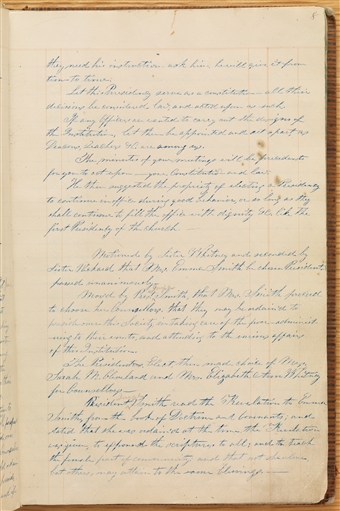 they need his instruction, ask him, he will give it from
time to time.
Let this Presidency serve as a constitution— all their
decisions be considered law; and acted upon as such.
If any Officers are wanted to carry out the designs of
the Institution, let them be appointed and set apart, as
Deacons, Teachers &c. are among us.
The minutes of your meetings will be precedents
for you to act upon— your Constitution and law.
He then suggested the propriety of electing a Presidency
to continue in office during good behavior, or so long as they
shall continue to fill the office with dignity &c. like the
first Presidency of the church.—
Motioned by Sister Whitney and seconded by
Sister Packard that Mrs. Emma Smith be chosen President
passed unanimously—
Moved by Pres. Smith, that Mrs. Smith proceed
to choose her Counsellors, that they may be ordained to
preside over this Society, in taking care of the poor— administ
ering to their wants, and attending to the various affairs
of this Institution.
The Presidentess Elect then made choice of Mrs.
Sarah M. Cleveland and Mrs. Elizabeth Ann Whitney
for Counsellors—
President Smith read the Revelation to Emma
Smith, from the book of Doctrine and Covenants; and
stated that she was ordained at the time the Revelation
was given, to expound the scriptures to all; and to teach
the female part of community; and that not she alone,
but others, may attain to the same blessings.—